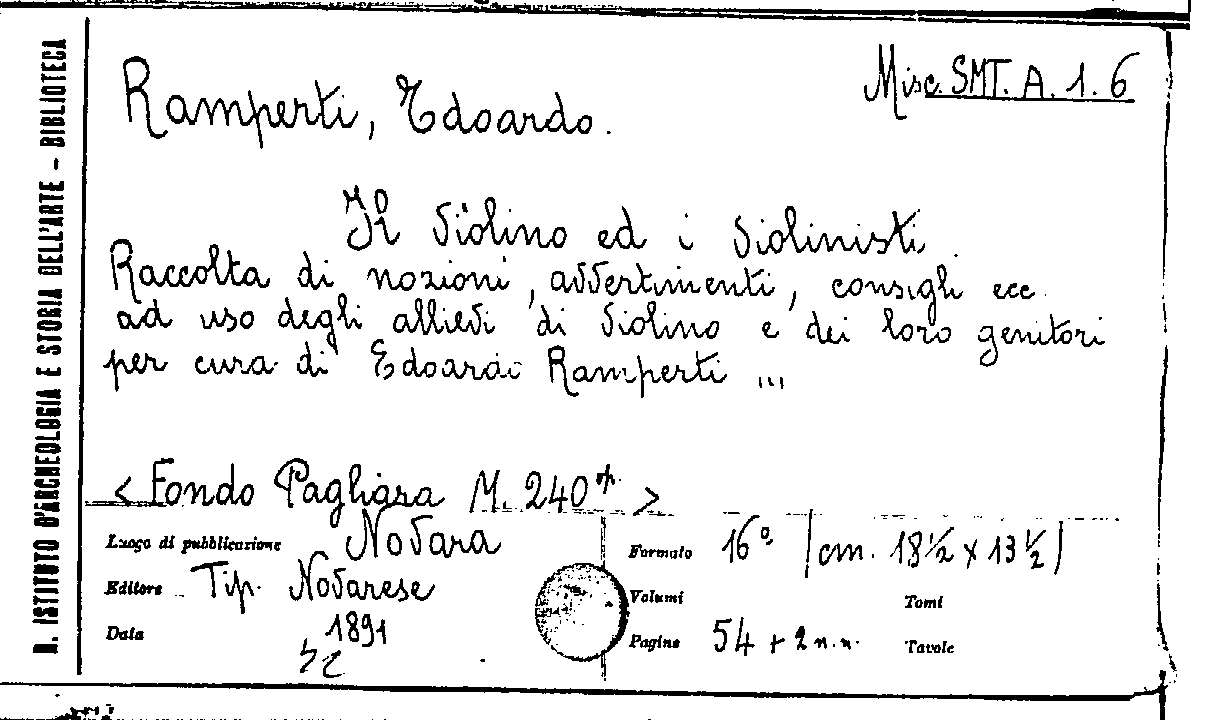 R. ISTITUTO D'ARCHEOLOGIA E STORIA DELL'ARTE - BIBLIOTECA
Misc. SMT. A. 1. 6
Ramperti, Edoardo.
Il violino ed i violinisti.
Raccolta di nozioni, avvertimenti, consigli ecc.
ad uso degli allievi di violino e dei loro genitori
per cura di Edoardo Ramperti ...
< Fondo Pagliara M. 240 op. >
Luogo di pubblicazione Novara
Editore Tip. Novarese
Data 1891
Formato 16° (cm. 18½ x 13½)
Volumi
Tomi
Pagine 54 + 2 n.n.
Tavole